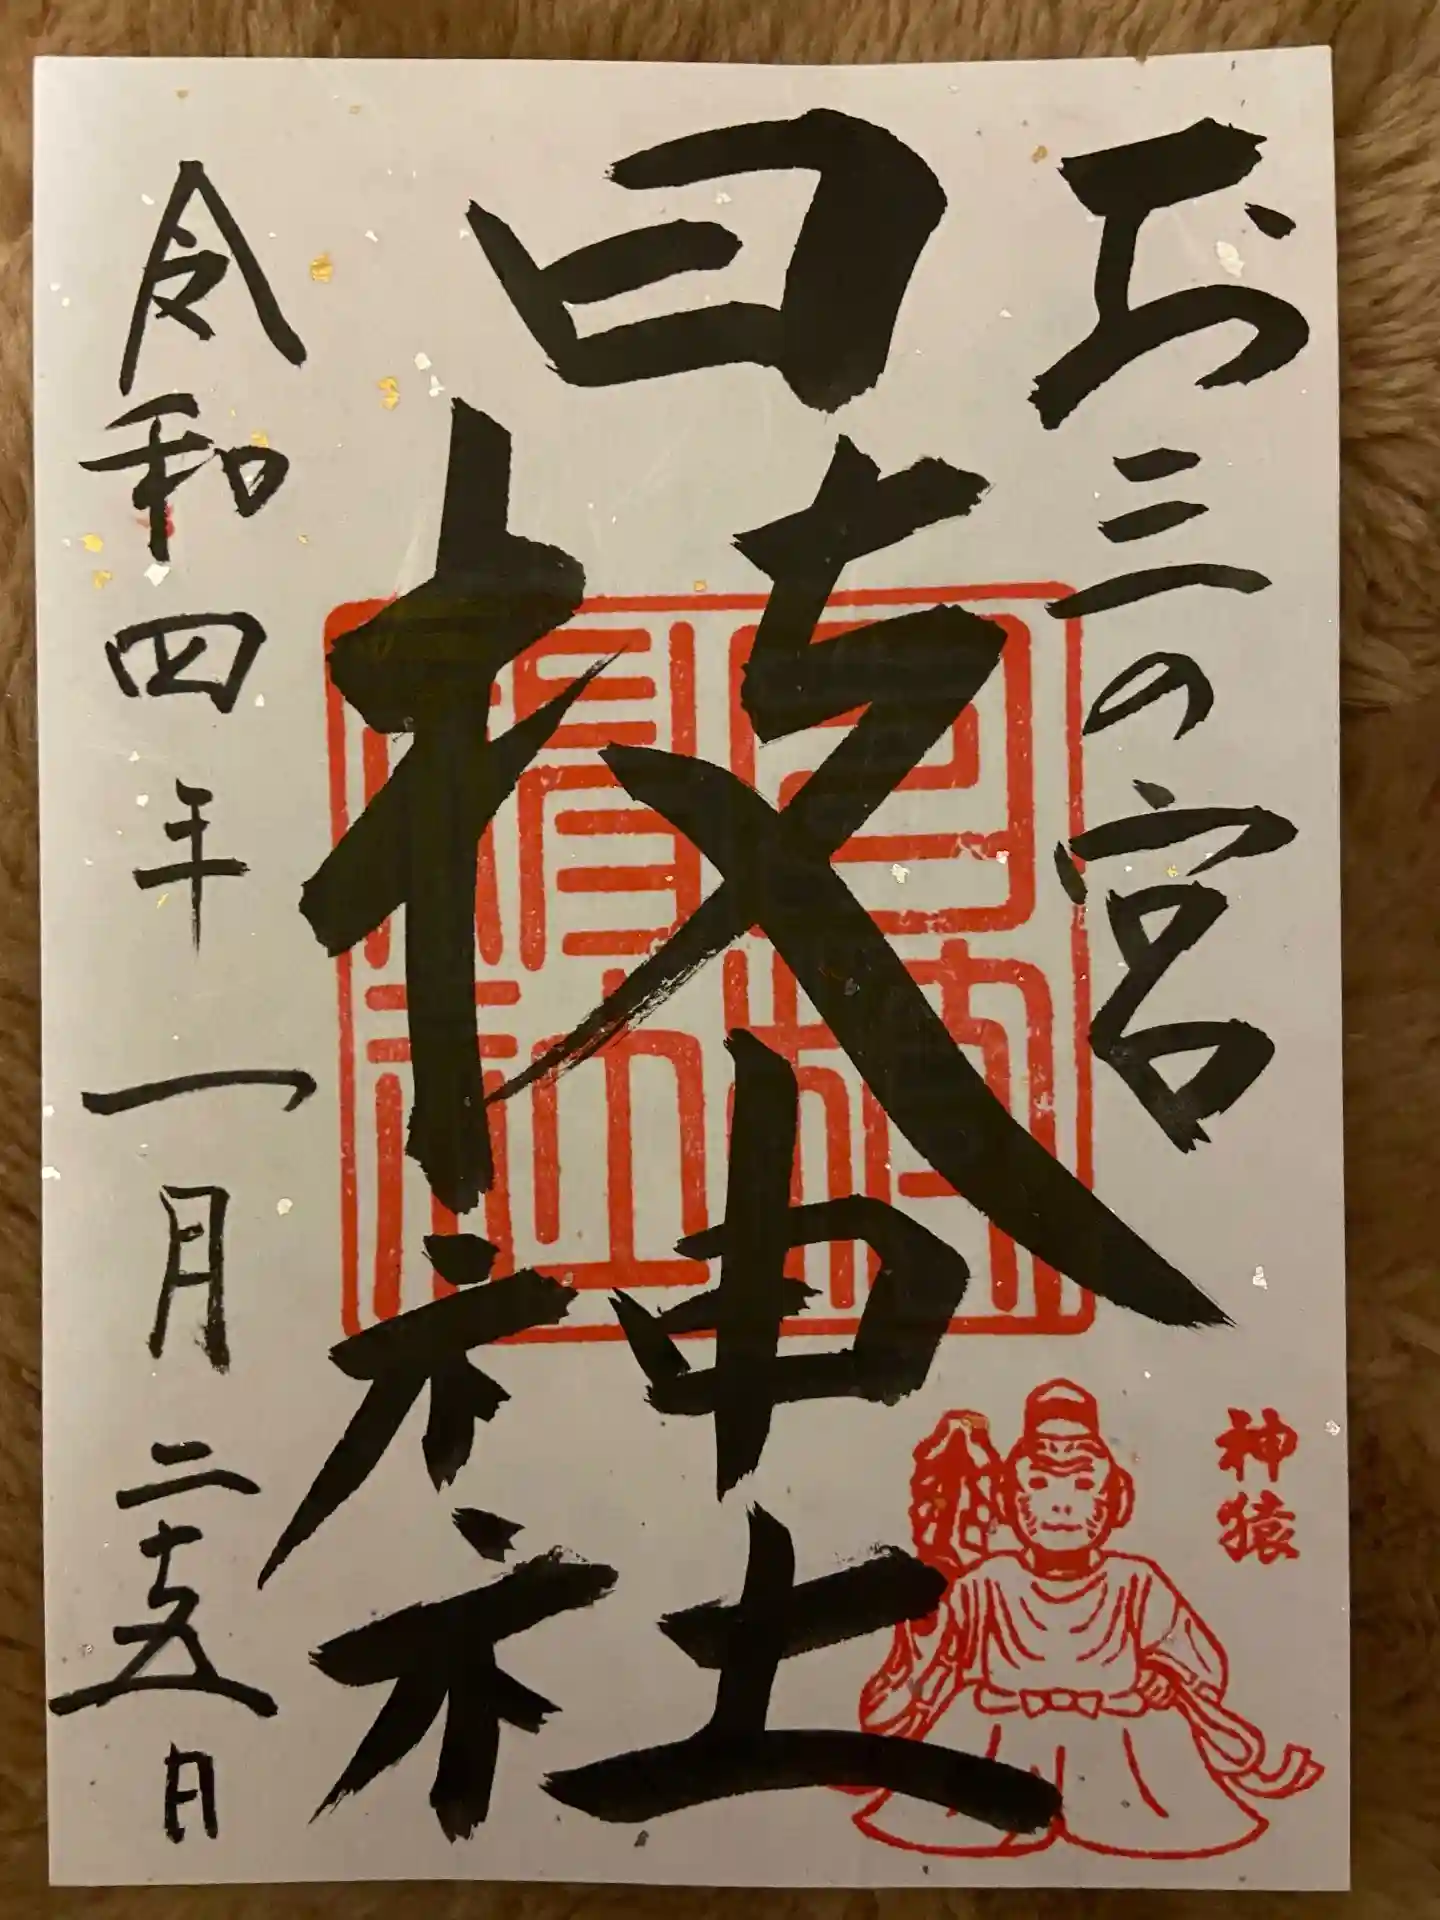 お三の宮
日枝神社
令和四年一月二十五日
神猿
日枝神社